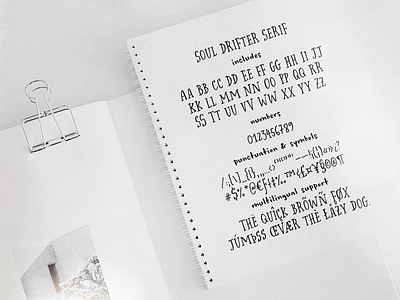 SOUL DRIFTER SERIF
includes
AA BB CC DD EE FF GG HH II JJ
KK LL MM NN OO PP QQ RR
SS TT UU VV WW XX YY ZZ
numbers
0123456789
punctuation & symbols
multilingual support
THE QUÍÇK BRÕWÑ FØX
JÚMÞSS ŒVÆR THË ŁAŽY DOG.